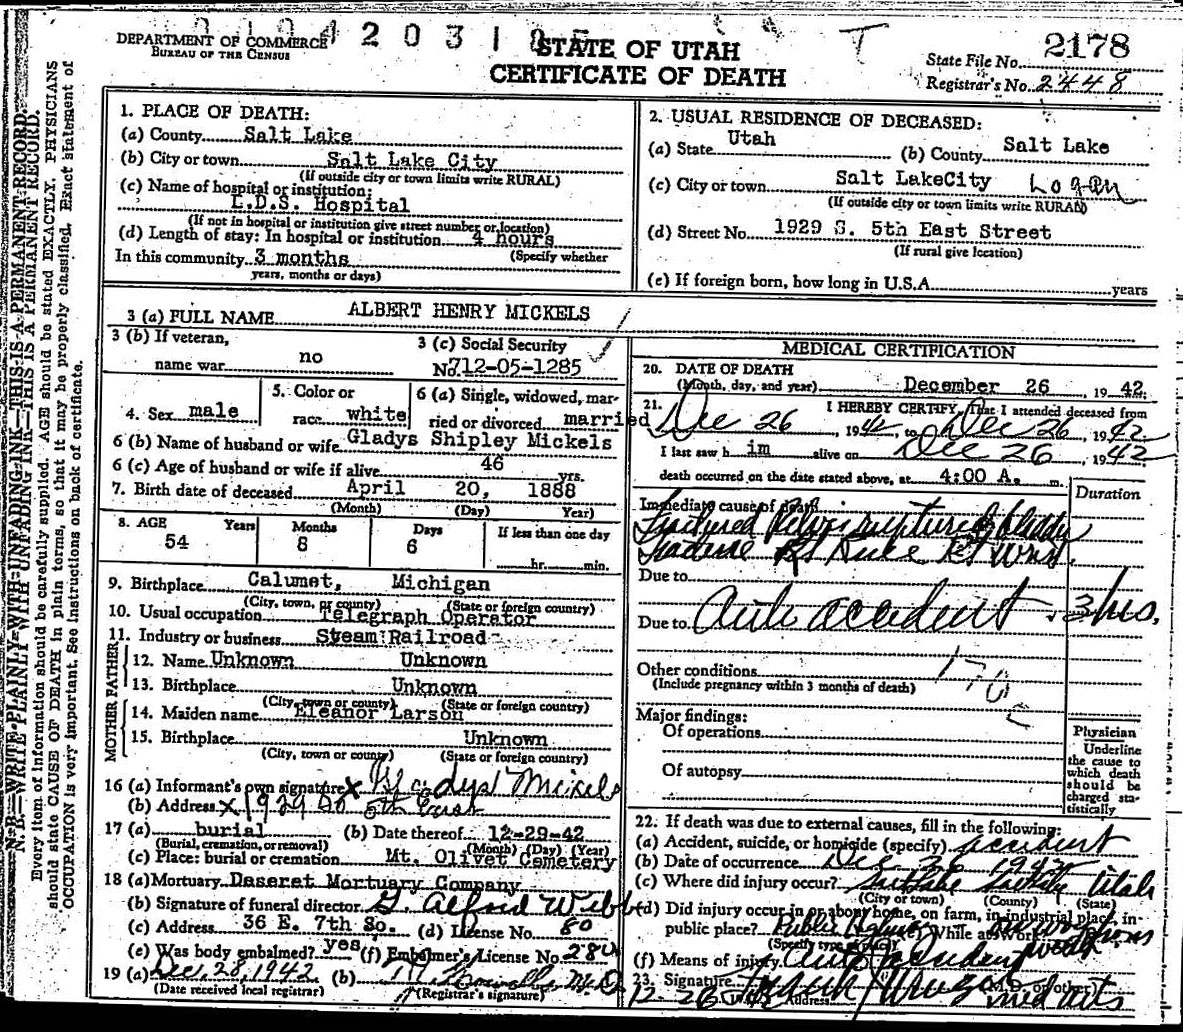 DEPARTMENT OF COMMERCE
BUREAU OF THE CENSUS
STATE OF UTAH
CERTIFICATE OF DEATH
State File No. 2178
Registrar's No. 2448
N. B.—WRITE PLAINLY WITH UNFADING INK—THIS IS A PERMANENT RECORD.
N. B.—WRITE PLAINLY WITH UNFADING INK—THIS IS A PERMANENT RECORD.
Every item of information should be carefully supplied. AGE should be stated EXACTLY. PHYSICIANS
should state CAUSE OF DEATH in plain terms, so that it may be properly classified. Exact statement of
OCCUPATION is very important. See instructions on back of certificate.
1. PLACE OF DEATH:
(a) County Salt Lake
(b) City or town Salt Lake City
(If outside city or town limits write RURAL)
(c) Name of hospital or institution:
L.D.S. Hospital
(If not in hospital or institution give street number or location)
(d) Length of stay: In hospital or institution 4 hours
In this community 3 months (Specify whether
years, months or days)
2. USUAL RESIDENCE OF DECEASED:
(a) State Utah (b) County Salt Lake
(c) City or town Salt LakeCity Logan
(If outside city or town limits write RURAL)
(d) Street No. 1929 S. 5th East Street
(If rural give location)
(e) If foreign born, how long in U.S.A. years
3 (a) FULL NAME ALBERT HENRY MICKELS
3 (b) If veteran, name war no
3 (c) Social Security No. 712-05-1285
4. Sex male
5. Color or race white
6 (a) Single, widowed, married or divorced married
6 (b) Name of husband or wife Gladys Shipley Mickels
6 (c) Age of husband or wife if alive 46 yrs.
7. Birth date of deceased April 20, 1888
(Month) (Day) Year)
8. AGE Years Months Days If less than one day
54 8 6 hr. min.
9. Birthplace Calumet, Michigan
(City, town, or county) (State or foreign country)
10. Usual occupation Telegraph Operator
11. Industry or business Steam Railroad
FATHER
12. Name Unknown Unknown
13. Birthplace Unknown
(City, town or county) (State or foreign country)
MOTHER
14. Maiden name Eleanor Larson
15. Birthplace Unknown
(City, town or county) (State or foreign country)
16 (a) Informant's own signature X Gladys Mickels
(b) Address X 1929 So. 5th East
17 (a) burial (b) Date thereof 12-29-42
(Burial, cremation, or removal) (Month) (Day) (Year)
(c) Place: burial or cremation Mt. Olivet Cemetery
18 (a) Mortuary Deseret Mortuary Company
(b) Signature of funeral director G. Alfred Webb
(c) Address 36 E. 7th So. (d) License No. 80
(e) Was body embalmed? yes (f) Embalmer's License No. 280
19 (a) Dec, 28, 1942 (b) M.D.
(Date received local registrar) (Registrar's signature)
MEDICAL CERTIFICATION
20. DATE OF DEATH
(Month, day, and year) December 26 , 19 42
21. I HEREBY CERTIFY, That I attended deceased from
Dec 26 , 1942, to Dec 26 , 1942
I last saw h im alive on Dec 26 , 1942
death occurred on the date stated above, at 4:00 A. m.
Duration
Immediate cause of death
Fractured Pelvis ruptured bladder
Fracture Rt Rt Wrist
Due to
Due to Auto accident 3 hrs.
Other conditions 170c
(Include pregnancy within 3 months of death)
Major findings:
Of operations
Of autopsy
Physician
Underline
the cause to
which death
should be
charged sta-
tistically
22. If death was due to external causes, fill in the following:
(a) Accident, suicide, or homicide (specify) accident
(b) Date of occurrence Dec 26 1942
(c) Where did injury occur? Salt Lake Utah
(City or town) (County) (State)
(d) Did injury occur in or about home, on farm, in industrial place, in
public place? Public While at work?
(Specify type of place)
(f) Means of injury Auto accident
23. Signature (M.D. or other)
Address